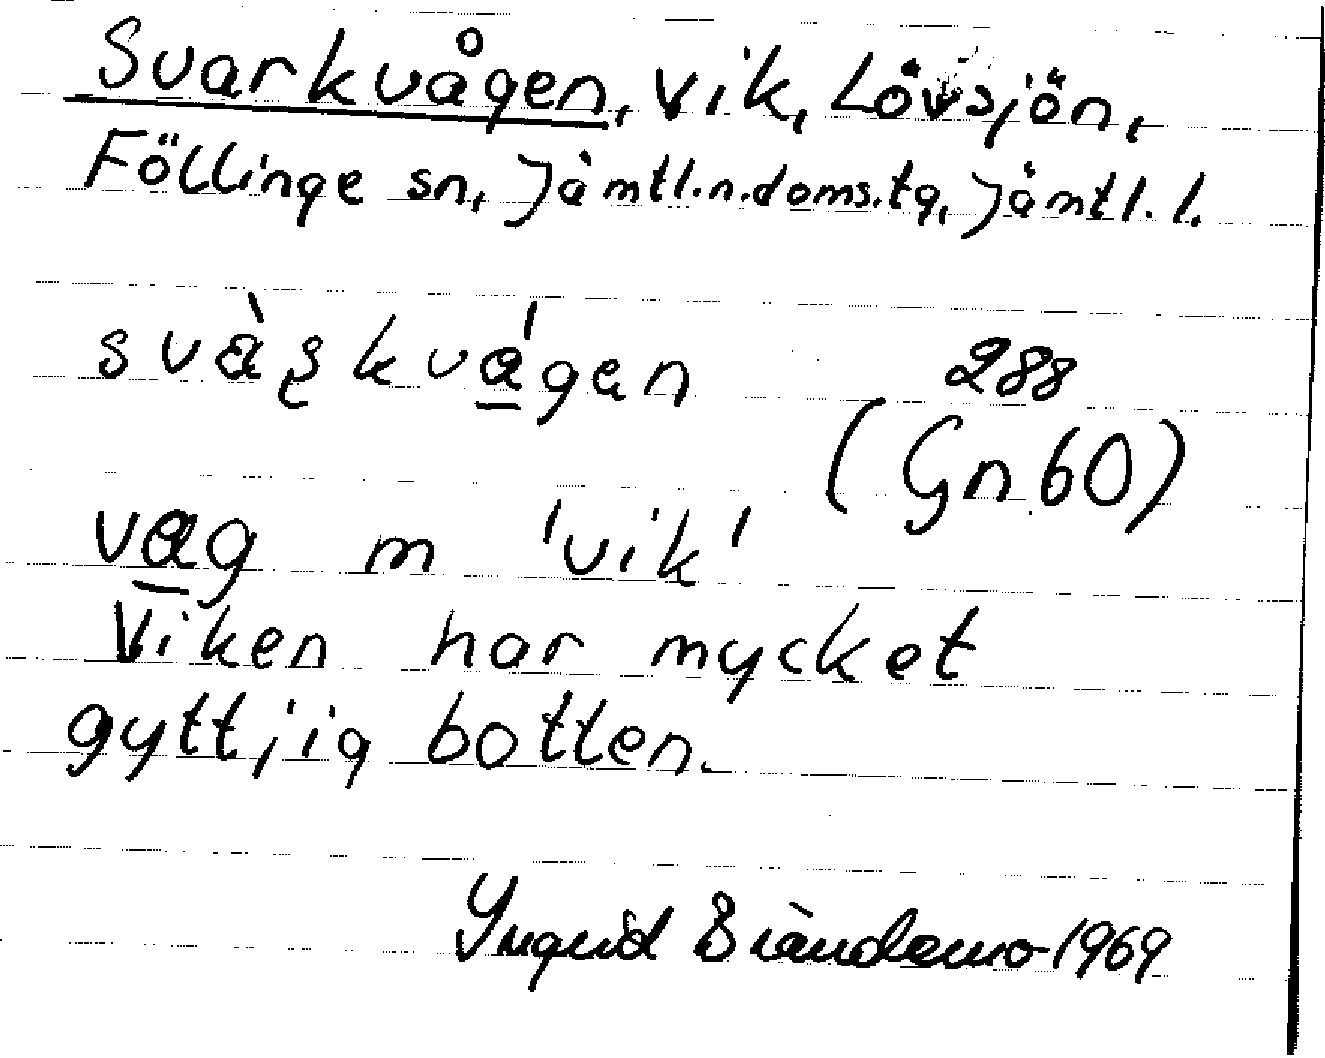 Svarkvågen, vik, Lövsjön,
Föllinge sn, Jämtl.n.doms.tg, Jämtl.l.
288
(Gn 60)
vag m 'vik'
Viken har mycket
gyttjig botten.
Ingrid Brändemo 1969